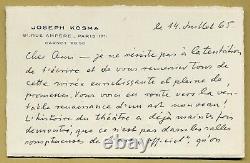 JOSEPH KOSMA
RUE AMPÈRE, PARIS
CARNOT
le 14 Juillet 65
Cher ami — je ne résiste pas à la tentation
de t'écrire et de vous remercier tous de
cette soirée enrichissante et pleine de
promesses. Vous avez en route vers la véri-
table renaissance d'un art nouveau!
L'histoire du théâtre a déjà maintes fois
démontré, que ce n'est pas dans les salles
"officiel", qu'on